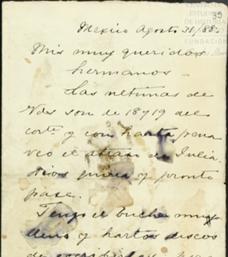 39
Mexico Agosto 31/88.
Mis muy queridos
hermanos
Las ultimas de
Vds son de 18 y 19 del
corte y con harta pena
veo el atraso de Julia.
Dios quiera y pronto
pase.
Tengo el buche muy
lleno y hartos deseos
de